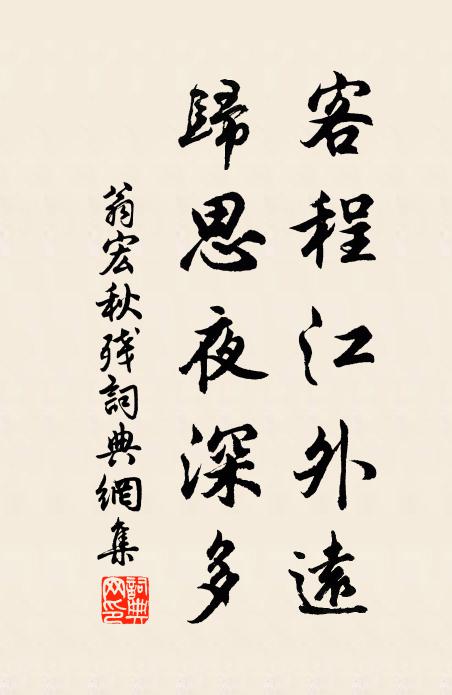 客程江外遠
歸思夜深多
翁宏秋殘詞典網集
詞典網印